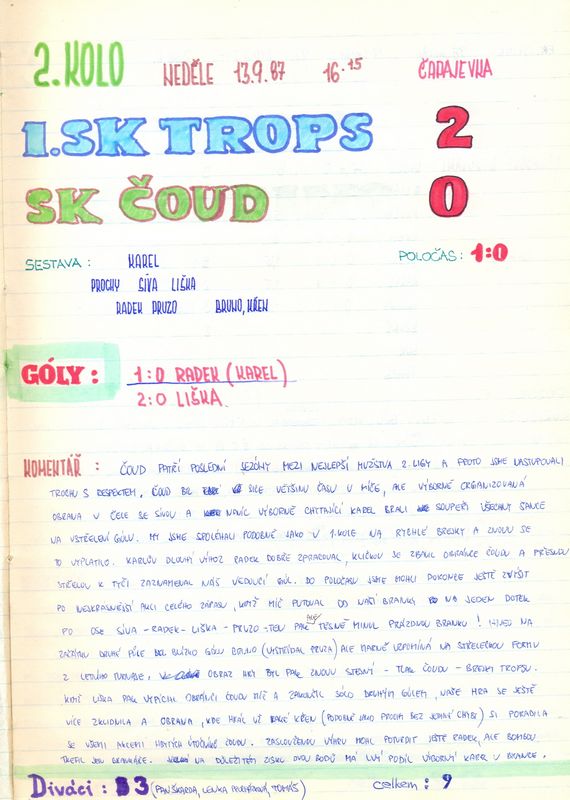 2. KOLO NEDĚLE 13.9.87 16.15 ČAPAJEVNA
1.SK TROPS 2
SK ČOUD 0
SESTAVA : KAREL POLOČAS : 1:0
PROCHY SÍVA LIŠKA
RADEK PRUZO BRUNO, KŘEN
GÓLY : 1:0 RADEK (KAREL)
2:0 LIŠKA
KOMENTÁŘ : ČOUD PATŘÍ POSLEDNÍ SEZÓNY MEZI NEJLEPŠÍ MUŽSTVA 2. LIGY A PROTO JSME NASTUPOVALI
TROCHU S RESPEKTEM. ČOUD BYL SICE VĚTŠINU ČASU V MÍČE, ALE VÝBORNĚ ORGANIZOVANÁ
OBRANA V ČELE SE SÍVOU A NAVÍC VÝBORNĚ CHYTAJÍCÍ KAREL BRALI SOUPEŘI VŠECHNY ŠANCE
NA VSTŘELENÍ GÓLU. MY JSME SPOLÉHALI PODOBNĚ JAKO V 1.KOLE NA RYCHLÉ BREJKY A ZNOVU SE
TO VYPLATILO. KARLŮV DLOUHÝ VÝHOZ RADEK DOBŘE ZPRACOVAL, KLIČKOU SE ZBAVIL OBRÁNCE ČOUDU A PŘESNOU
STŘELOU K TYČI ZAZNAMENAL NÁŠ VEDOUCÍ GÓL. DO POLOČASU JSME MOHLI DOKONCE JEŠTĚ ZVÝŠIT
PO NEJKRÁSNĚJŠÍ AKCI CELÉHO ZÁPASU, KDYŽ MÍČ PUTOVAL OD NAŠÍ BRANKY NA JEDEN DOTEK
PO OSE SÍVA - RADEK - LIŠKA - PRUZO - TEN PAK ALE TĚSNĚ MINUL PRÁZDNOU BRANKU ! HNED NA
ZAČÁTKU DRUHÉ PŮLE BYL BLÍZKO GÓLU BRUNO (VYSTŘÍDAL PRUZA) ALE MARNĚ VZPOMÍNÁ NA STŘELECKOU FORMU
Z LETNÍHO TURNAJE. OBRAZ HRY BYL PAK ZNOVU STEJNÝ - TLAK ČOUDU - BREJKY TROPSU.
KDYŽ LIŠKA PAK VYPÍCHL OBRÁNCI ČOUDU MÍČ A ZAKONČIL SÓLO DRUHÝM GÓLEM, NAŠE HRA SE JEŠTĚ
VÍCE ZKLIDNILA A OBRANA, KDE HRÁL UŽ TAKÉ KŘEN (PODOBNĚ JAKO PROCHY BEZ JEDINÉ CHYBY) SI PORADILA
SE VŠEMI AKCEMI HBITÝCH ÚTOČNÍKŮ ČOUDU. ZASLOUŽENOU VÝHRU MOHL POTVRDIT JEŠTĚ RADEK, ALE BOMBOU
TREFIL JEN BRANKÁŘE. NA DŮLEŽITÉM ZISKU DVOU BODŮ MÁ LVÍ PODÍL VÝBORNÝ KAREL V BRANCE.
Diváci : 3 (PAN ŠKARDA, LENKA, TOMÁŠ) celkem : 9